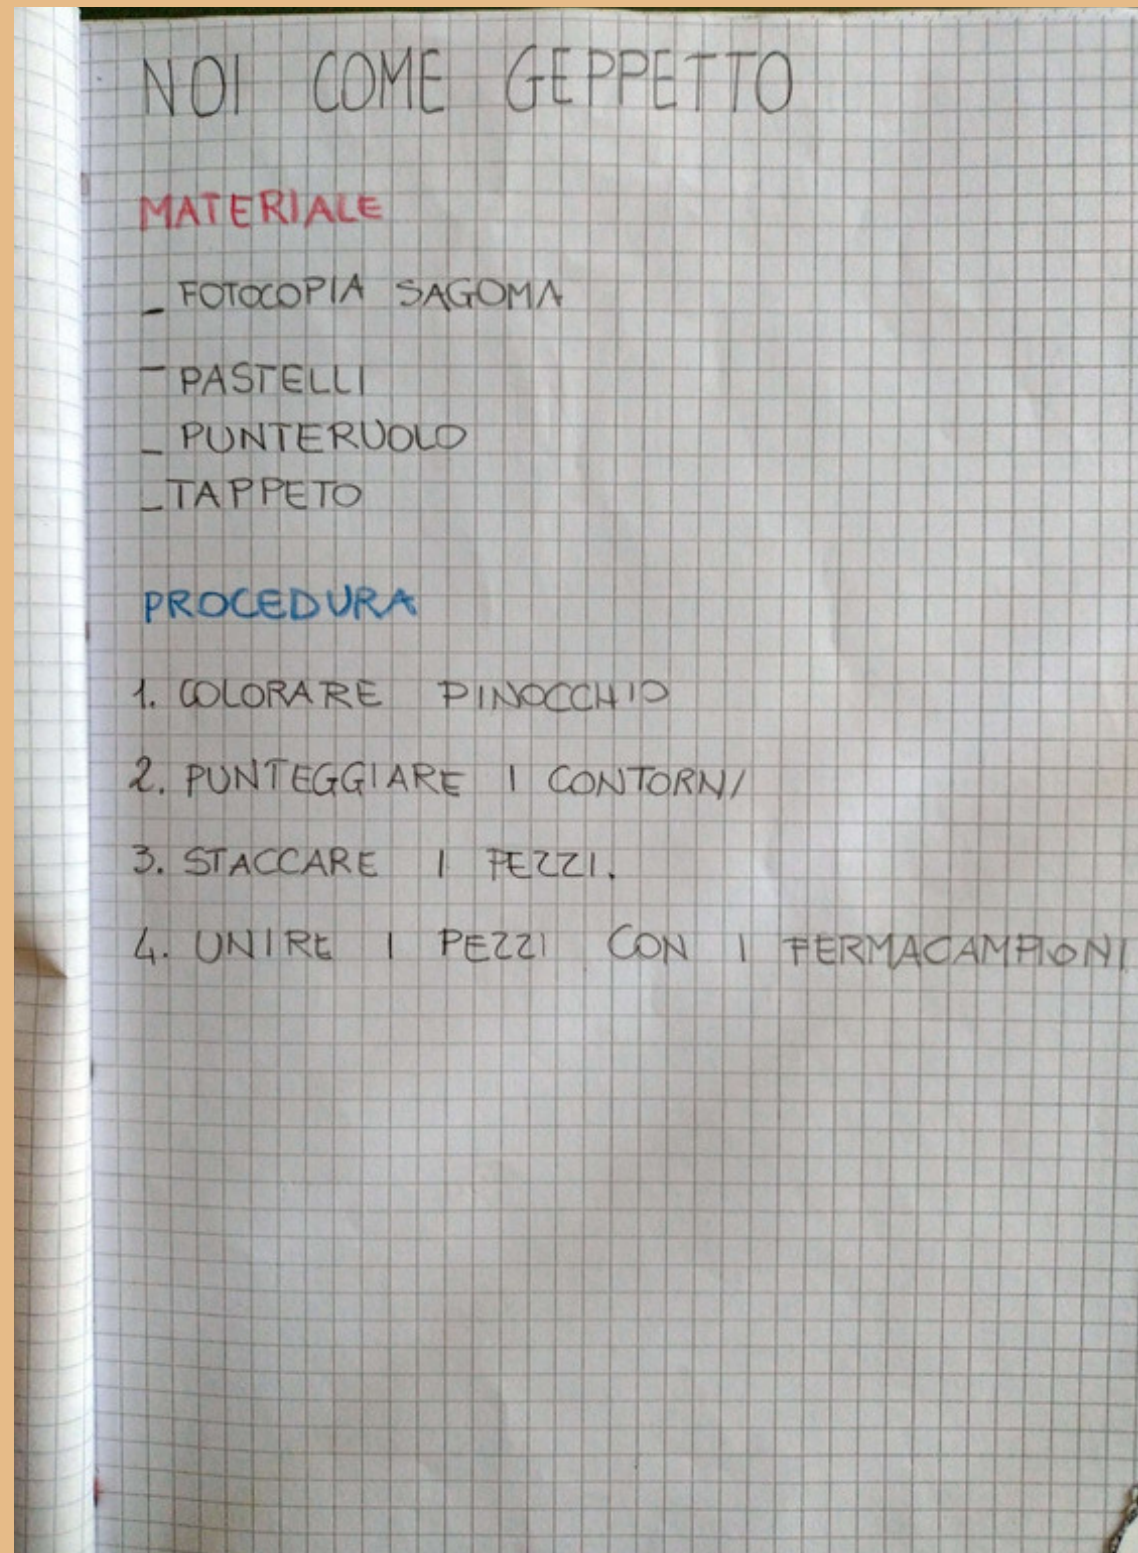 NOI COME GEPPETTO
MATERIALE
- FOTOCOPIA SAGOMA
- PASTELLI
- PUNTERUOLO
- TAPPETO
PROCEDURA
1. COLORARE PINOCCHIO
2. PUNTEGGIARE I CONTORNI
3. STACCARE I PEZZI.
4. UNIRE I PEZZI CON I FERMACAMPIONI